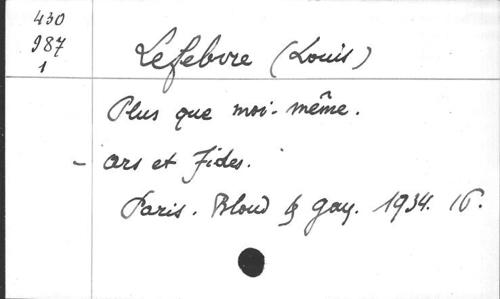 430
987
1
Lefebvre (Louis)
Plus que moi-même.
- Ars et Fides.
Paris. Bloud & Gay. 1934. 16.